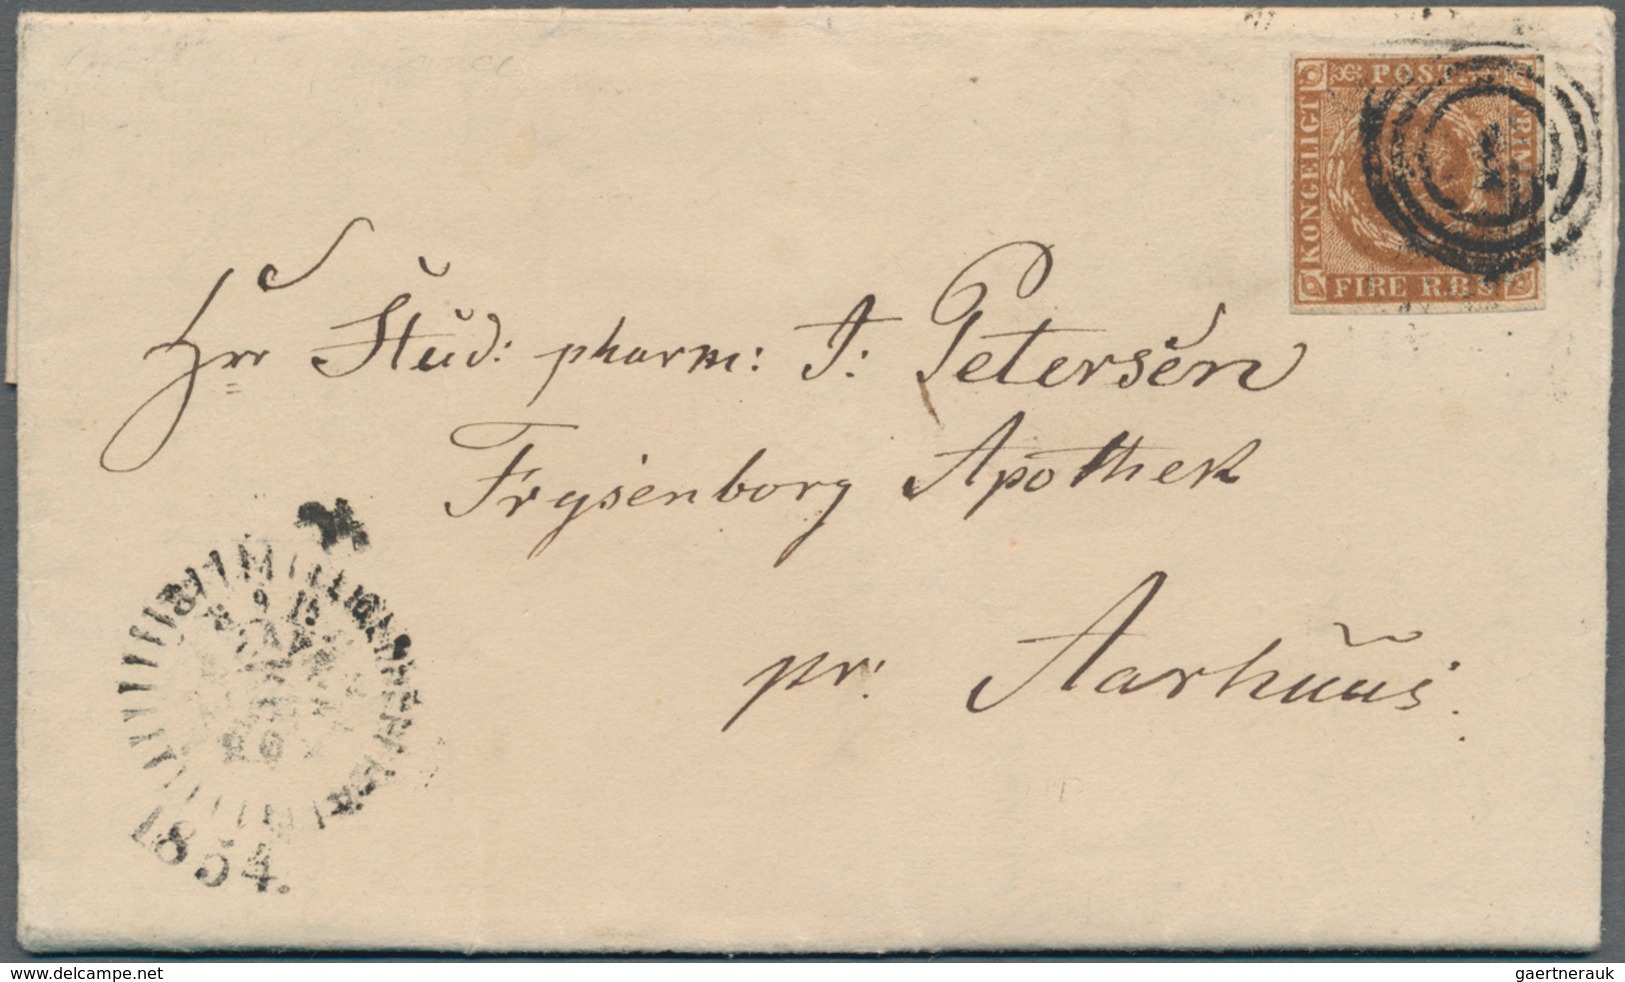 KONGELIGT
POST
FRIM
FIRE R.B.S
1
Hrr Stud: pharm: J: Petersen
Frysenborg Apothek
pr: Aarhuus.
1854.
www.delcampe.net
gaertnerauk